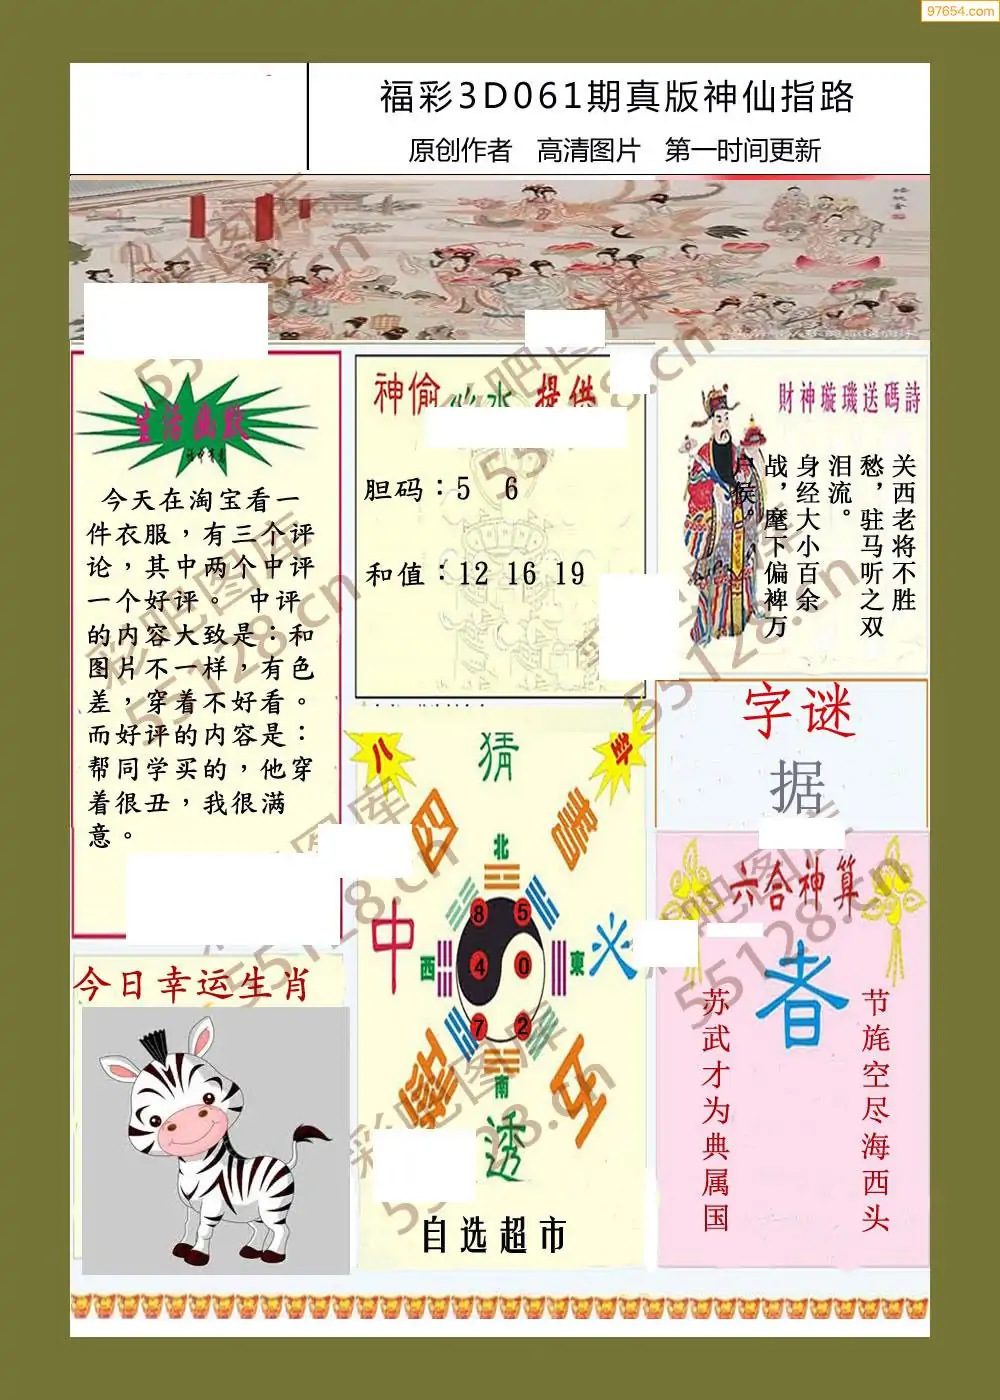 97654.com
福彩3D061期真版神仙指路
原创作者 高清图片 第一时间更新
生活幽默
今天在淘宝看一
件衣服，有三个评
论，其中两个中评
一个好评。 中评
的内容大致是：和
图片不一样，有色
差，穿着不好看。
而好评的内容是：
帮同学买的，他穿
着很丑，我很满
意。
今日幸运生肖
神偷 提供
胆码：5 6
和值：12 16 19
財神璇璣送碼詩
关西老将不胜
愁，驻马听之双
泪流。
身经大小百余
战，麾下偏裨万
户侯。
字谜
据
八
卦
猜
北
中
西
東
必
南
透
8 5
4 0
7 2
自选超市
六合神算
者
节旄空尽海西头
苏武才为典属国
彩吧图库
55128.cn
彩吧图库
55128.cn
彩吧图库
55128.cn
彩吧图库
55128.cn